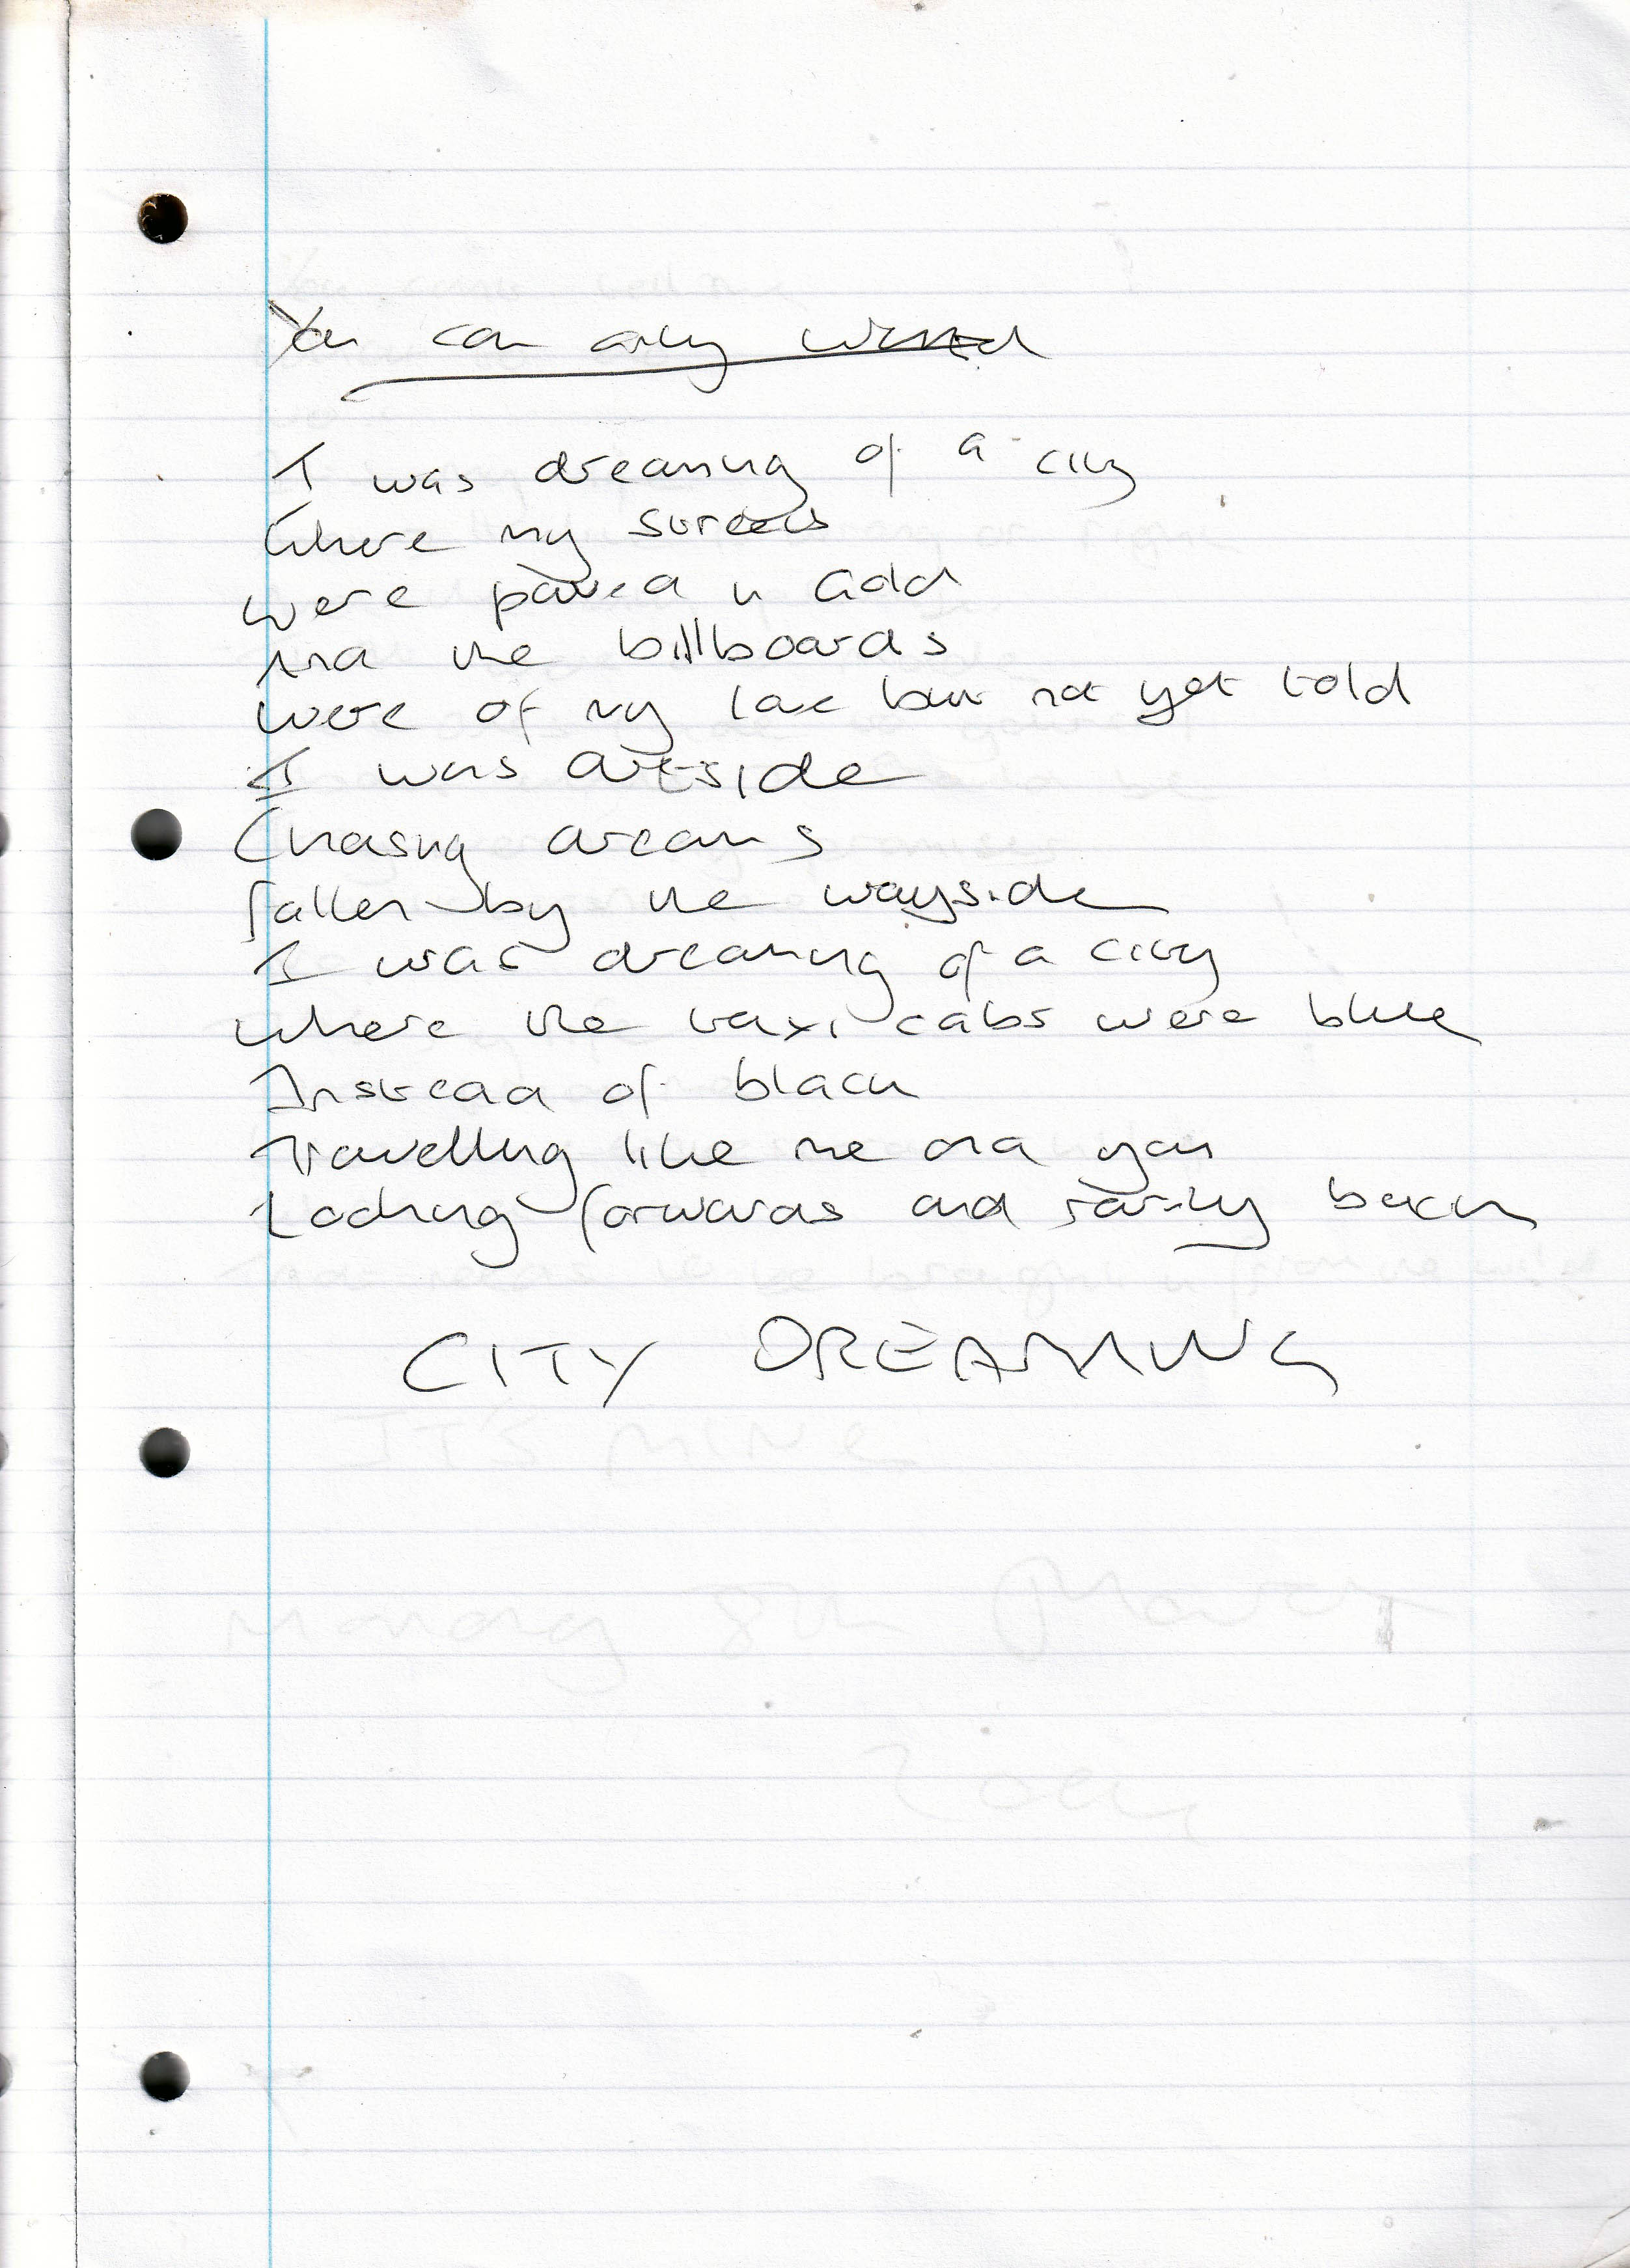 You can only
I was dreaming of a city
Where my streets
were paved in Gold
And the billboards
were of my love but not yet told
I was outside
Chasing dreams
fallen by the wayside
I was dreaming of a city
where the taxi cabs were blue
Instead of black
Travelling like me and you
Looking forwards and rarely back
CITY DREAMING